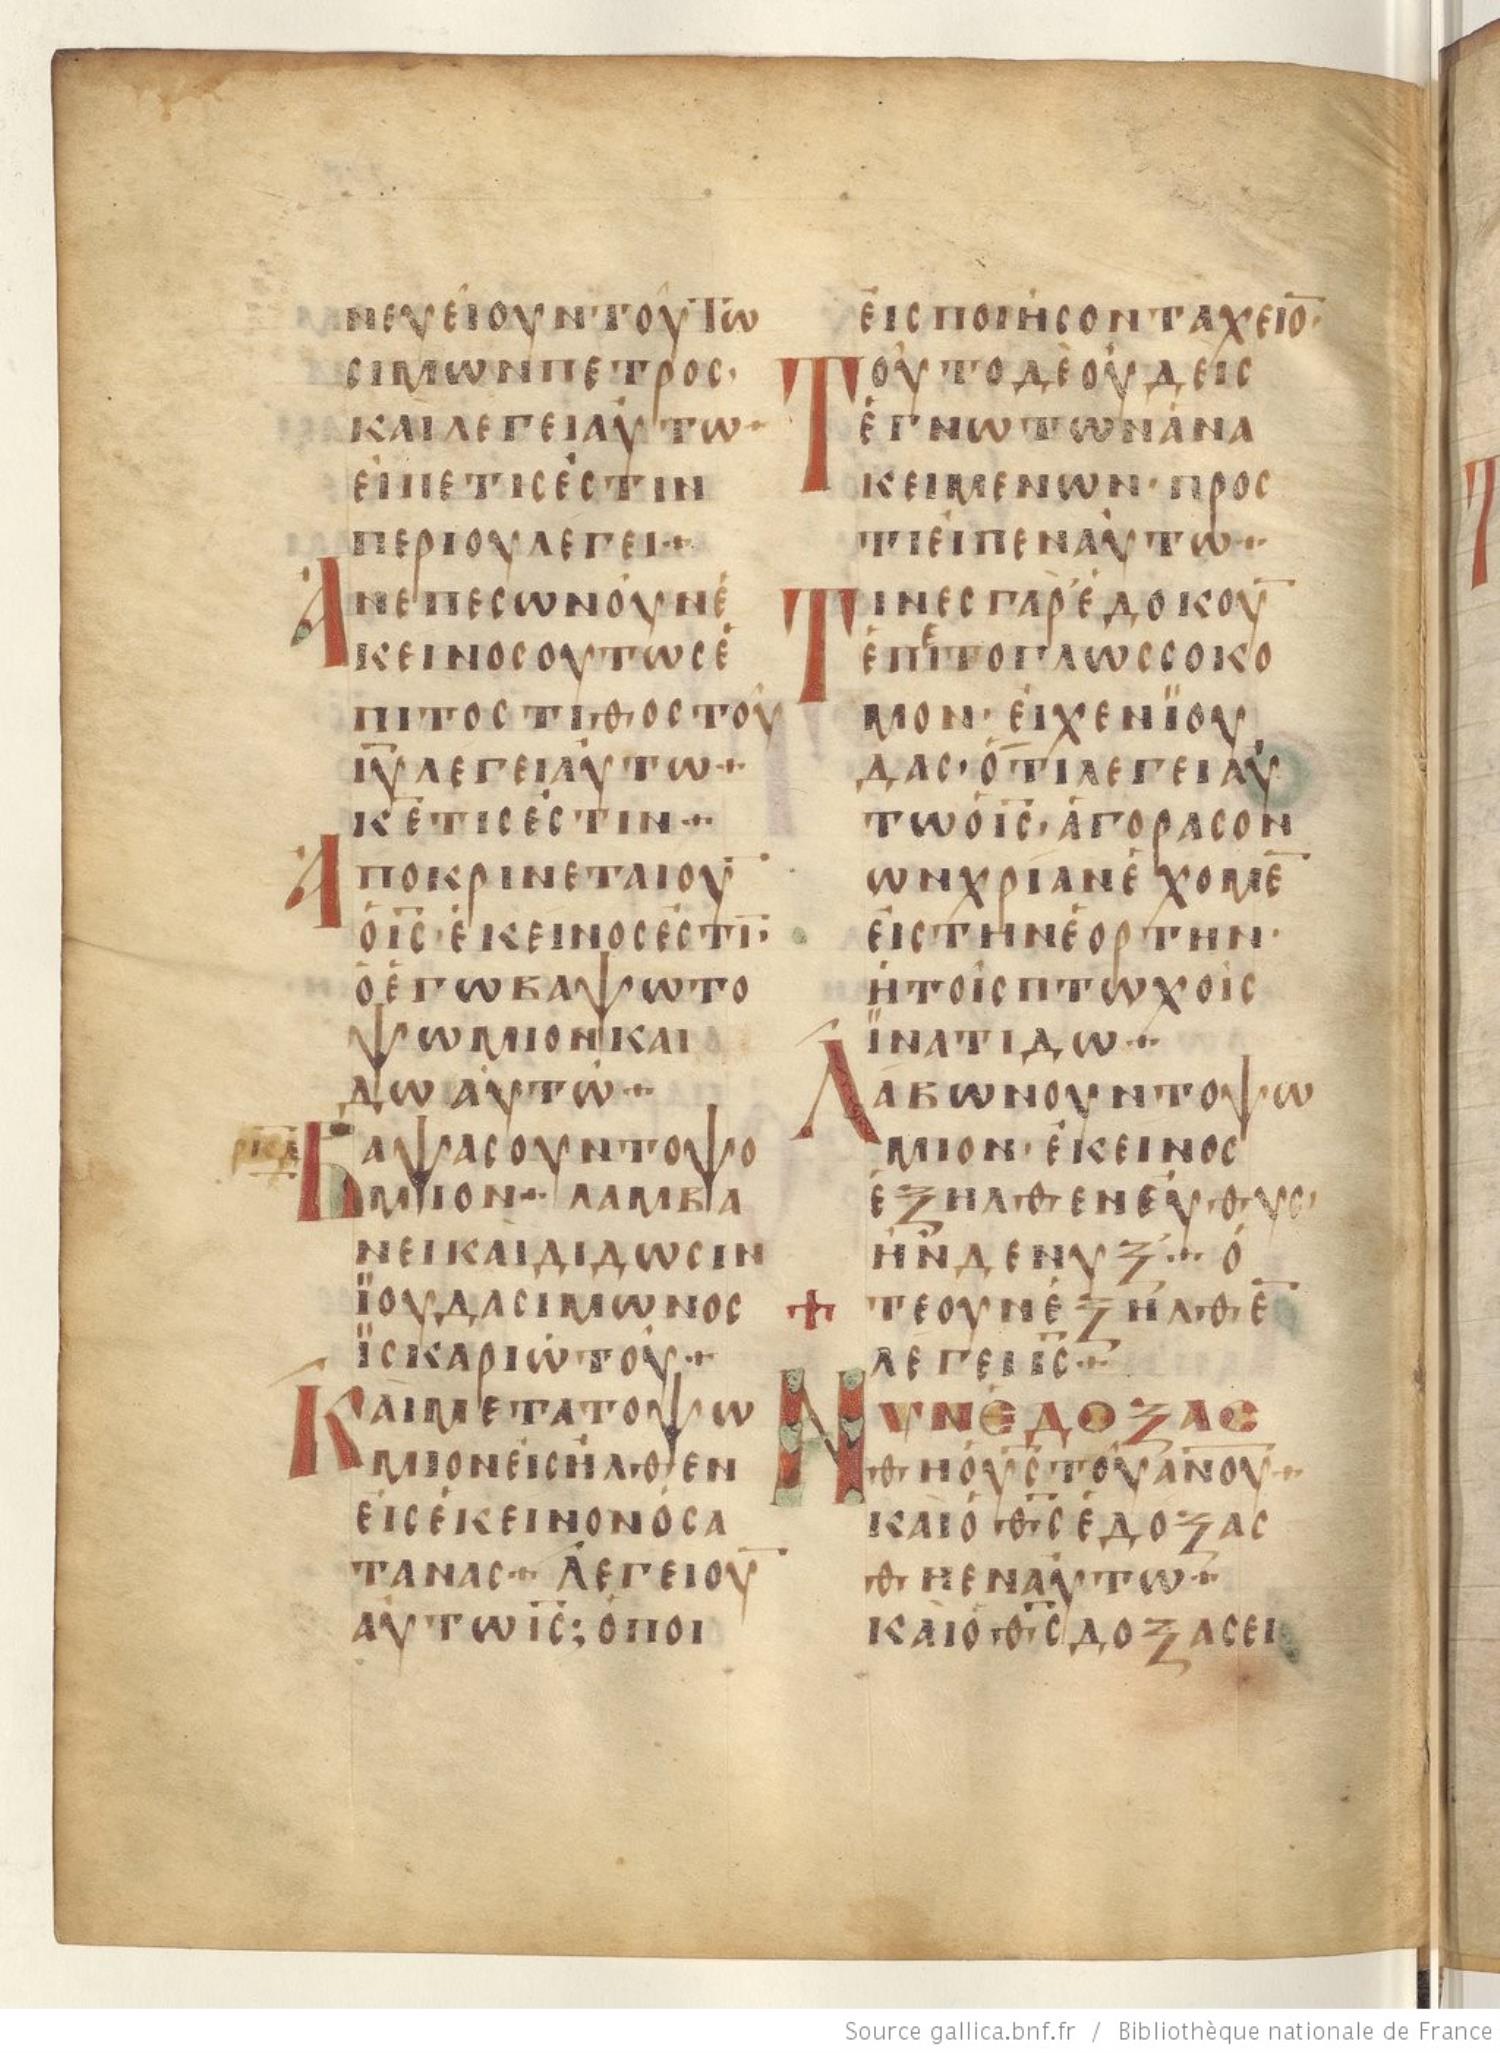 ΝΕΥΕΙΟΥΝΤΟΥΤΩ
ΣΙΜΩΝΠΕΤΡΟΣ·
ΚΑΙΛΕΓΕΙΑΥΤΩ·
ΕΙΠΕΤΙΣΕΣΤΙΝ
ΠΕΡΙΟΥΛΕΓΕΙ·
ΑΝΕΠΕΣΩΝΟΥΝΕ
ΚΕΙΝΟΣΟΥΤΩΣΕ
ΠΙΤΟΣΤΙΘΟΣΤΟΥ
ΙΥΛΕΓΕΙΑΥΤΩ·
ΚΕΤΙΣΕΣΤΙΝ·
ΑΠΟΚΡΙΝΕΤΑΙΟΥ
ΟΙΣ·ΕΚΕΙΝΟΣΕΣΤΙ·
ΟΕΓΩΒΑΨΩΤΟ
ΨΩΜΙΟΝΚΑΙ
ΔΩΑΥΤΩ·
ΒΑΨΑΣΟΥΝΤΟΨΟ
ΜΙΟΝ· ΛΑΜΒΑ
ΝΕΙΚΑΙΔΙΔΩΣΙΝ
ΪΟΥΔΑΣΙΜΩΝΟΣ
ΪΣΚΑΡΙΩΤΟΥ·
ΚΑΙΜΕΤΑΤΟΨΩ
ΜΙΟΝΕΙΣΗΛΘΕΝ
ΕΙΣΕΚΕΙΝΟΝΟΣΑ
ΤΑΝΑΣ· ΛΕΓΕΙΟΥ
ΑΥΤΩΙΣ; ΟΠΟΙ
ΕΙΣΠΟΙΗΣΟΝΤΑΧΕΙΟ·
ΤΟΥΤΟΔΕΟΥΔΕΙΣ
ΕΓΝΩΤΩΝΑΝΑ
ΚΕΙΜΕΝΩΝ·ΠΡΟΣ
ΤΙΕΙΠΕΝΑΥΤΩ·
ΤΙΝΕΣΓΑΡΕΔΟΚΟΥ
ΕΠΕΙΤΟΓΛΩΣΣΟΚΟ
ΜΟΝ·ΕΙΧΕΝΪΟΥ
ΔΑΣ·ΟΤΙΛΕΓΕΙΑΥ
ΤΩΟΙΣ·ΑΓΟΡΑΣΟΝ
ΩΝΧΡΙΑΝΕΧΟΜΕ
ΕΙΣΤΗΝΕΟΡΤΗΝ·
ΗΤΟΙΣΠΤΩΧΟΙΣ
ΪΝΑΤΙΔΩ·
ΛΑΒΩΝΟΥΝΤΟΨΩ
ΜΙΟΝ·ΕΚΕΙΝΟΣ
ΕΞΗΛΘΕΝΕΥΘΥΣ·
ΗΝΔΕΝΥΞ· Ο
ΤΕΟΥΝΕΞΗΛΘΕ
ΛΕΓΕΙΙΣ·
ΝΥΝΕΔΟΞΑΣ
ΘΗΟΥΣΤΟΥΑΝΟΥ·
ΚΑΙΟΘΣΕΔΟΞΑΣ
ΘΗΕΝΑΥΤΩ·
ΚΑΙΟΘΣΔΟΞΑΣΕΙ
Source gallica.bnf.fr / Bibliothèque nationale de France